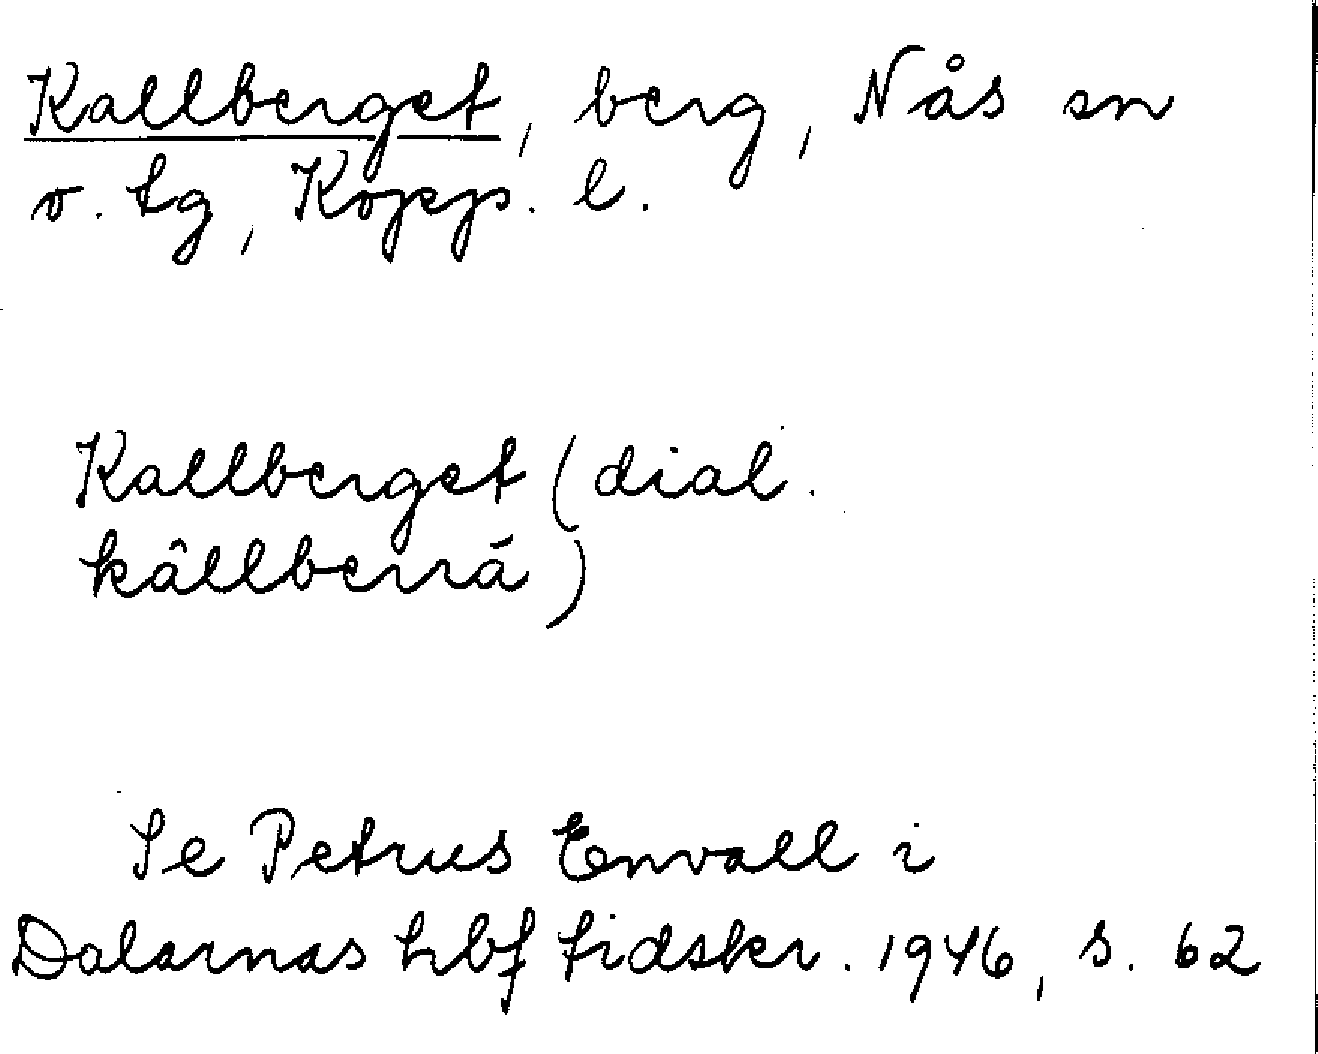 Kallberget, berg, Nås sn
o. tg, Kopp. l.
Kallberget (dial.
kâllberrá)
Se Petrus Envall i
Dalarnas hbf tidskr. 1946, s. 62